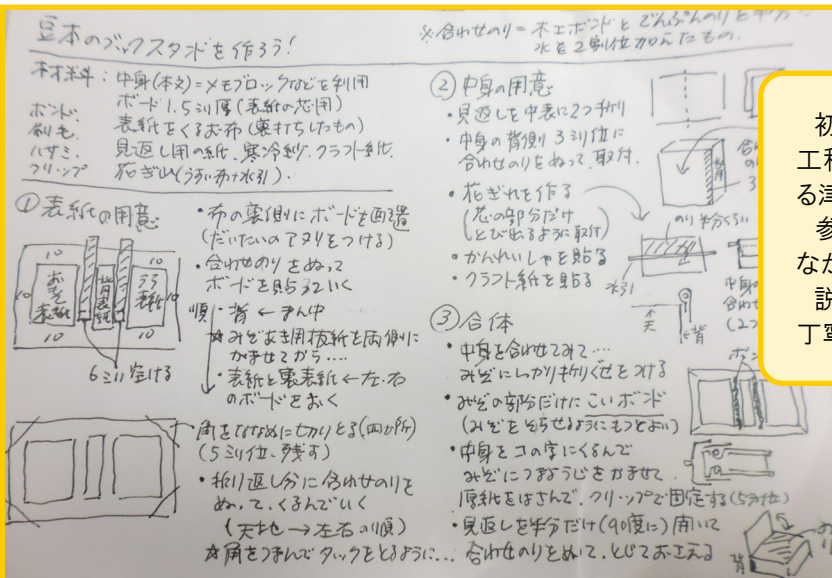 豆本のブックスタンドを作ろう!
※合わせのり=木工ボンドとでんぷんのりを半分
水を2割位加えたもの。
材料:中身(本文)=メモブロックなどを利用
ボード1.5ミリ厚(表紙の芯用)
表紙をくるむ布(裏打ちしたもの)
見返し用の紙、寒冷紗、クラフト紙
花ぎれ(うすい布+水引)
ボンド、
刷毛、
ハサミ、
クリップ
①表紙の用意
10
10
10
おもて表紙
背表紙
うら表紙
10
10
10
6ミリ空ける
・布の裏側にボードを配置
(だいたいのアタリをつける)
・合わせのりをぬって
ボードを貼っていく
順
・背 ← まん中
☆みぞあき用板紙を両側に
かませてから....
・表紙と裏表紙←左・右
のボードをおく
・角をななめに切りとる(四か所)
(5ミリ位、残す)
・折り返し分に合わせのりを
ぬって、くるんでいく
(天地→左右の順)
☆角をつまんでタックをとるように…
②中身の用意
・見返しを中表に2つ折り
・中身の背側3ミリ位に
合わせのりをぬって、取付.
・花ぎれを作る
(芯の部分だけ
とび出るように取付)
・かんれいしゃを貼る
・クラフト紙を貼る
背
3
のり半分くらい
水引
天
背
中身の
合わせ
(2つ
③合体
・中身を合わせてみて…
みぞにしっかり折りぐせをつける
・みぞの部分だけにこいボンド
(みぞをそらせるようにもつとよい)
・中身をコの字にくるんで
みぞにつまようじをかませて
厚紙をはさんで、クリップで固定する(5分位)
・見返しを半分だけ(90度に)開いて
合わせのりをぬって、とじておさえる
ボン
背
初
工程
る津
参
なか
説
丁寧